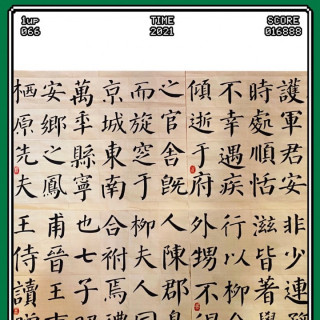 1up
066
TIME
2021
SCORE
016888
護軍君安
時處順恬
不幸遇疾
傾逝于府
之官舍既
而旋窆于
京城東南
萬年縣寧
安鄉之鳳
栖原先夫
非少連
滋皆著學
行以柳
外甥不得
人陳郡
柳夫人
合祔焉禮
也七子
甫晉王
王侍讀